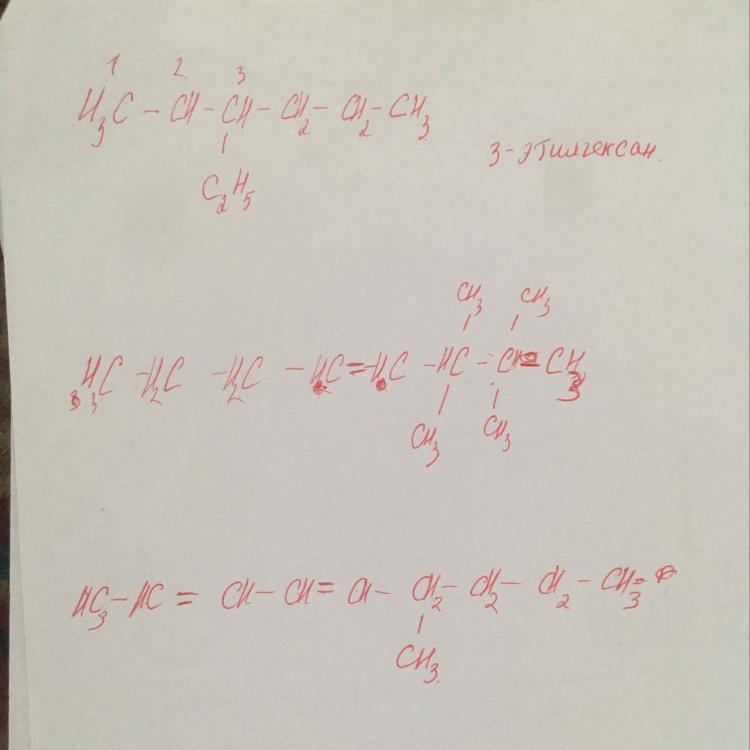 1 2 3
H₃C – CH – CH – CH₂ – CH₂ – CH₃
C₂H₅
3-этилгексан.
CH₃ CH₃
H₃C – H₂C – H₂C – HC = HC – HC – CH = CH₃
CH₃ CH₃
HC₃ – HC = CH – CH = CH – CH₂ – CH₂ – CH₂ – CH₃
CH₃.